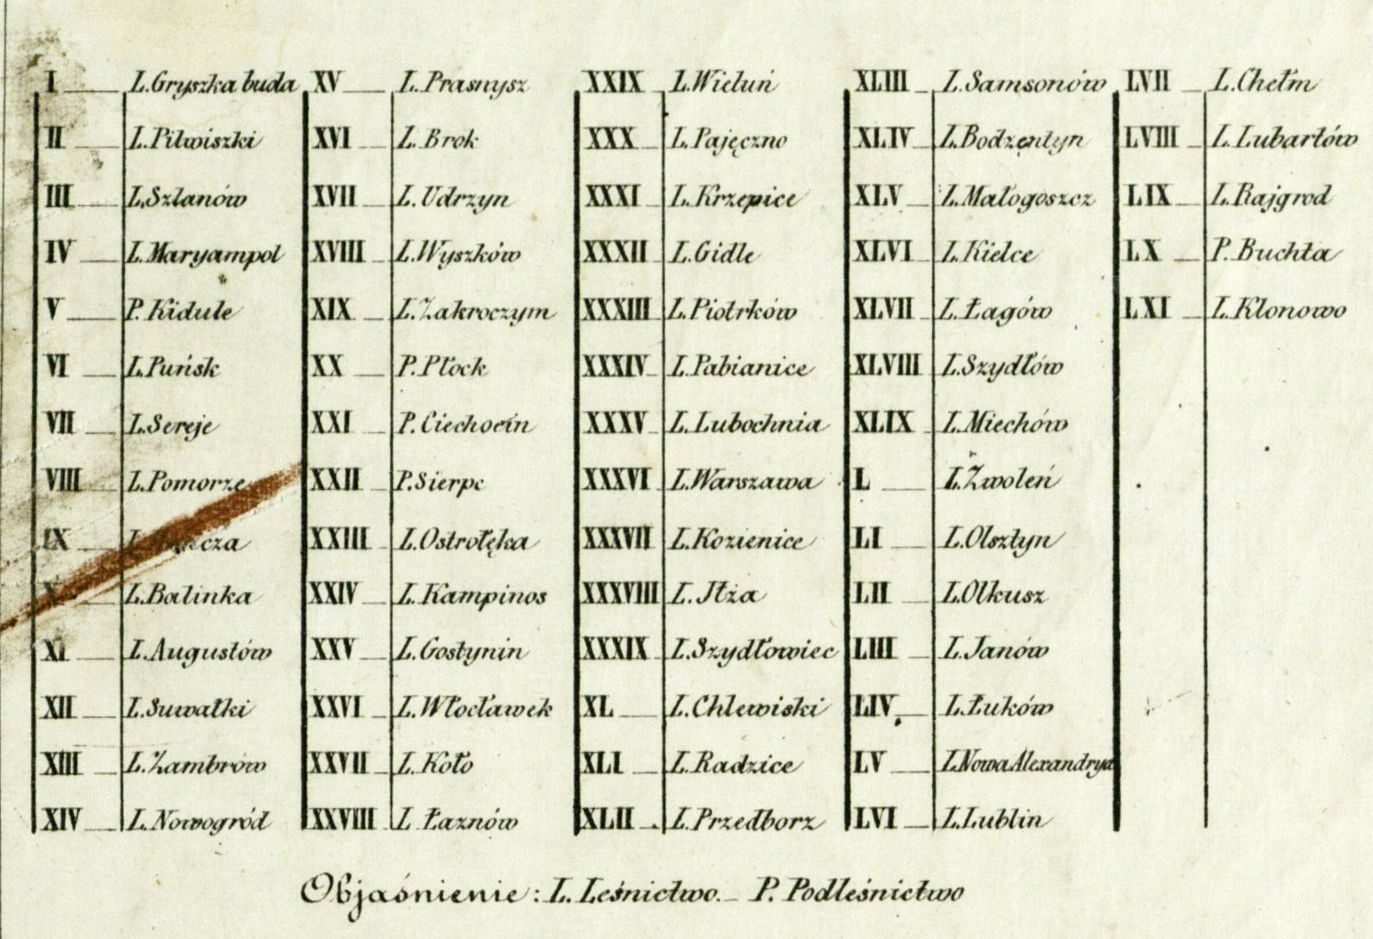 I L. Gryszka buda
II L. Pilwiszki
III L. Szlanów
IV L. Maryampol
V P. Kidule
VI L. Puńsk
VII L. Sereje
VIII L. Pomorze
IX L.
X L. Balinka
XI L. Augustów
XII L. Suwałki
XIII L. Zambrów
XIV L. Nowogród
XV L. Prasnysz
XVI L. Brok
XVII L. Udrzyn
XVIII L. Wyszków
XIX L. Zakroczym
XX P. Płock
XXI P. Ciechocin
XXII P. Sierpc
XXIII L. Ostrołęka
XXIV L. Kampinos
XXV L. Gostynin
XXVI L. Włocławek
XXVII L. Koło
XXVIII L Łaznów
XXIX L. Wieluń
XXX L. Pajęczno
XXXI L. Krzepice
XXXII L. Gidle
XXXIII L. Piotrków
XXXIV L. Pabianice
XXXV L. Lubochnia
XXXVI L. Warszawa
XXXVII L. Kozienice
XXXVIII L. Iłża
XXXIX L. Szydłowiec
XL L. Chlewiski
XLI L. Radzice
XLII L. Przedborz
XLIII L. Samsonów
XLIV L. Bodzentyn
XLV L. Małogoszcz
XLVI L. Kielce
XLVII L. Łagów
XLVIII L. Szydłów
XLIX L. Miechów
L L. Zwoleń
LI L. Olsztyn
LII L. Olkusz
LIII L. Janów
LIV L. Łuków
LV L. Nowa Alexandrya
LVI L. Lublin
LVII L. Chełm
LVIII L. Lubartów
LIX L. Rajgrod
LX P. Buchta
LXI L. Klonowo
Objaśnienie: L. Leśnictwo. _ P. Podleśnictwo